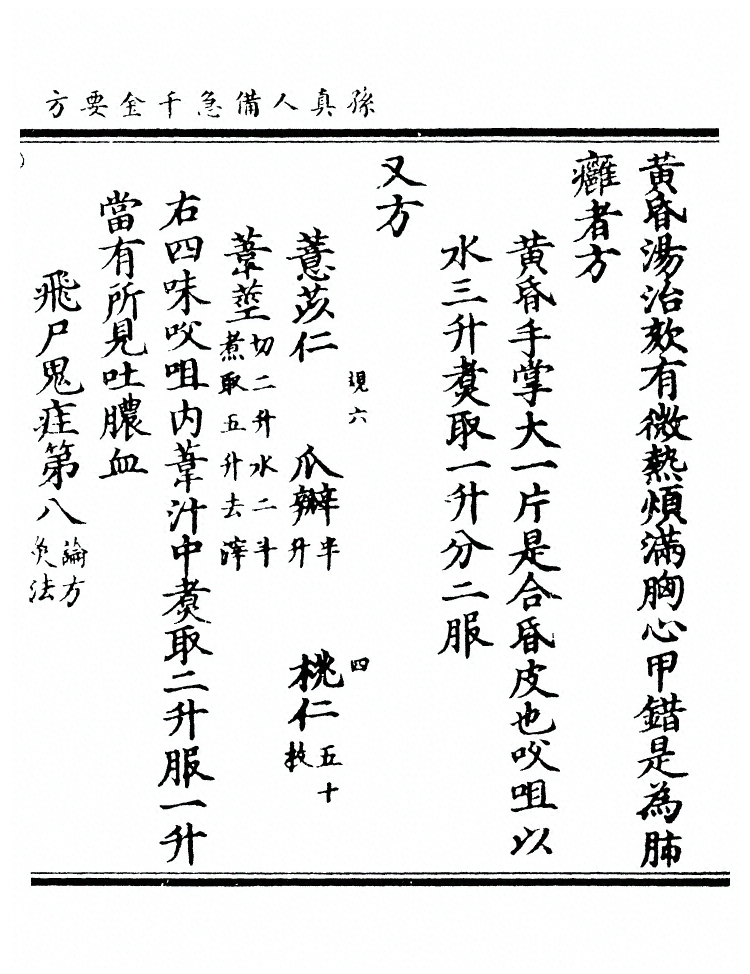 孫真人備急千金要方
黃昏湯治欬有微熱煩滿胸心甲錯是為肺
癰者方
黃昏手掌大一片是合昏皮也㕮咀以
水三升煑取一升分二服
又方
薏苡仁 瓜瓣半升 桃仁五十枚
葦莖切二升水二斗煮取五升去滓
右四味㕮咀内葦汁中煑取二升服一升
當有所見吐膿血
飛尸鬼疰第八論方灸法
現六
四